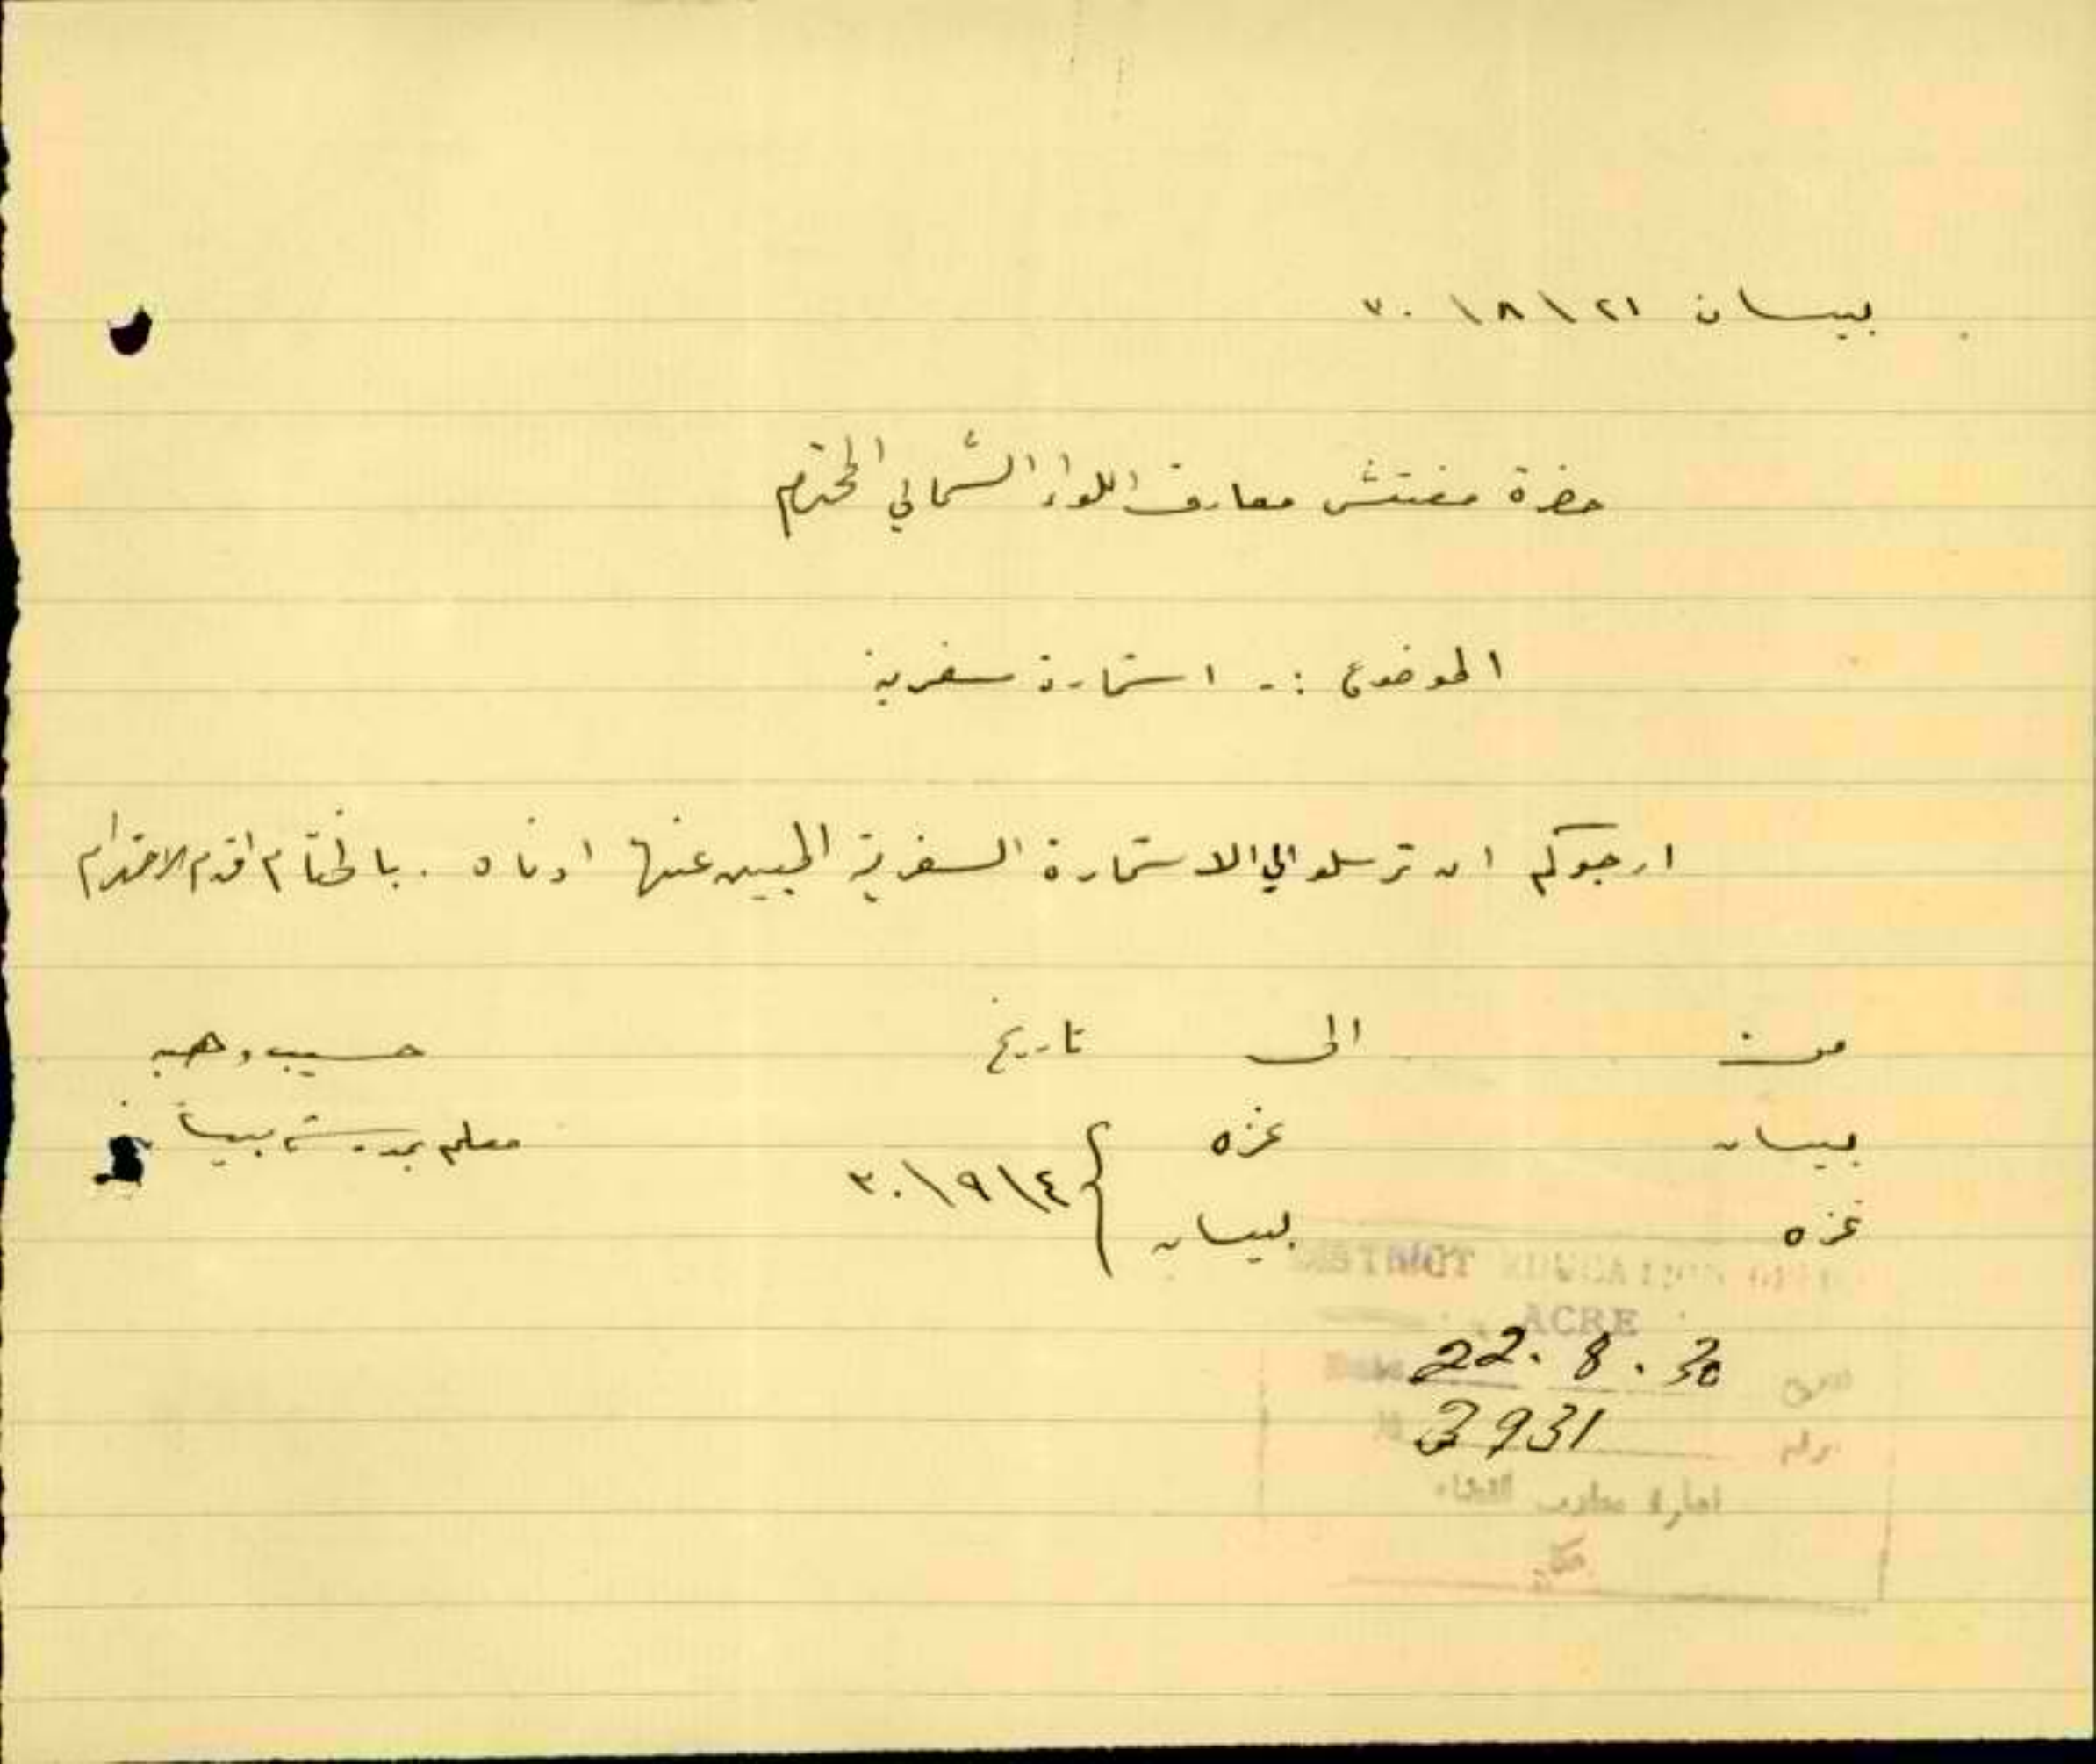 بيسان ٢١ \ ٨ \ ٣٠
حضرة مفتش معارف اللواء الشمالي المحترم
الموضوع :- استمارة سفرية
ارجوكم ان ترسلوا لي الاستمارة السفرية المبين عنها ادناه . بالختام اقدم الاحترام
من الى تاريخ
بيسان غزه
غزه بيسان
٤ \ ٩ \ ٣٠
حسيب وهبه
معلم بمدرسة بيسان
DISTRICT EDUCATION OFFICE
ACRE
Date 22. 8. 30 التاريخ
3931 نمرو
ادارة معارف القضاء
عكا